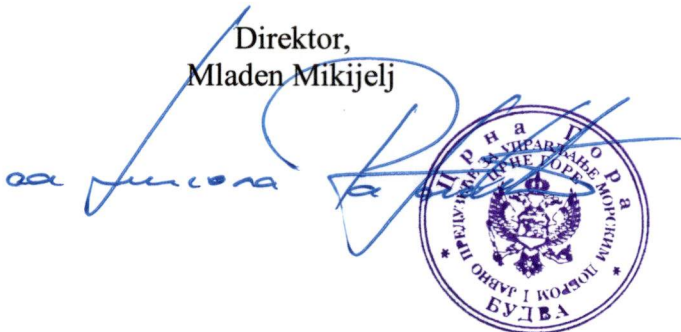 Direktor,
Mladen Mikijelj
Црна Гора
ЈАВНО ПРЕДУЗЕЋЕ ЗА УПРАВЉАЊЕ МОРСКИМ ДОБРОМ I
ЦРНЕ ГОРЕ
БУДВА